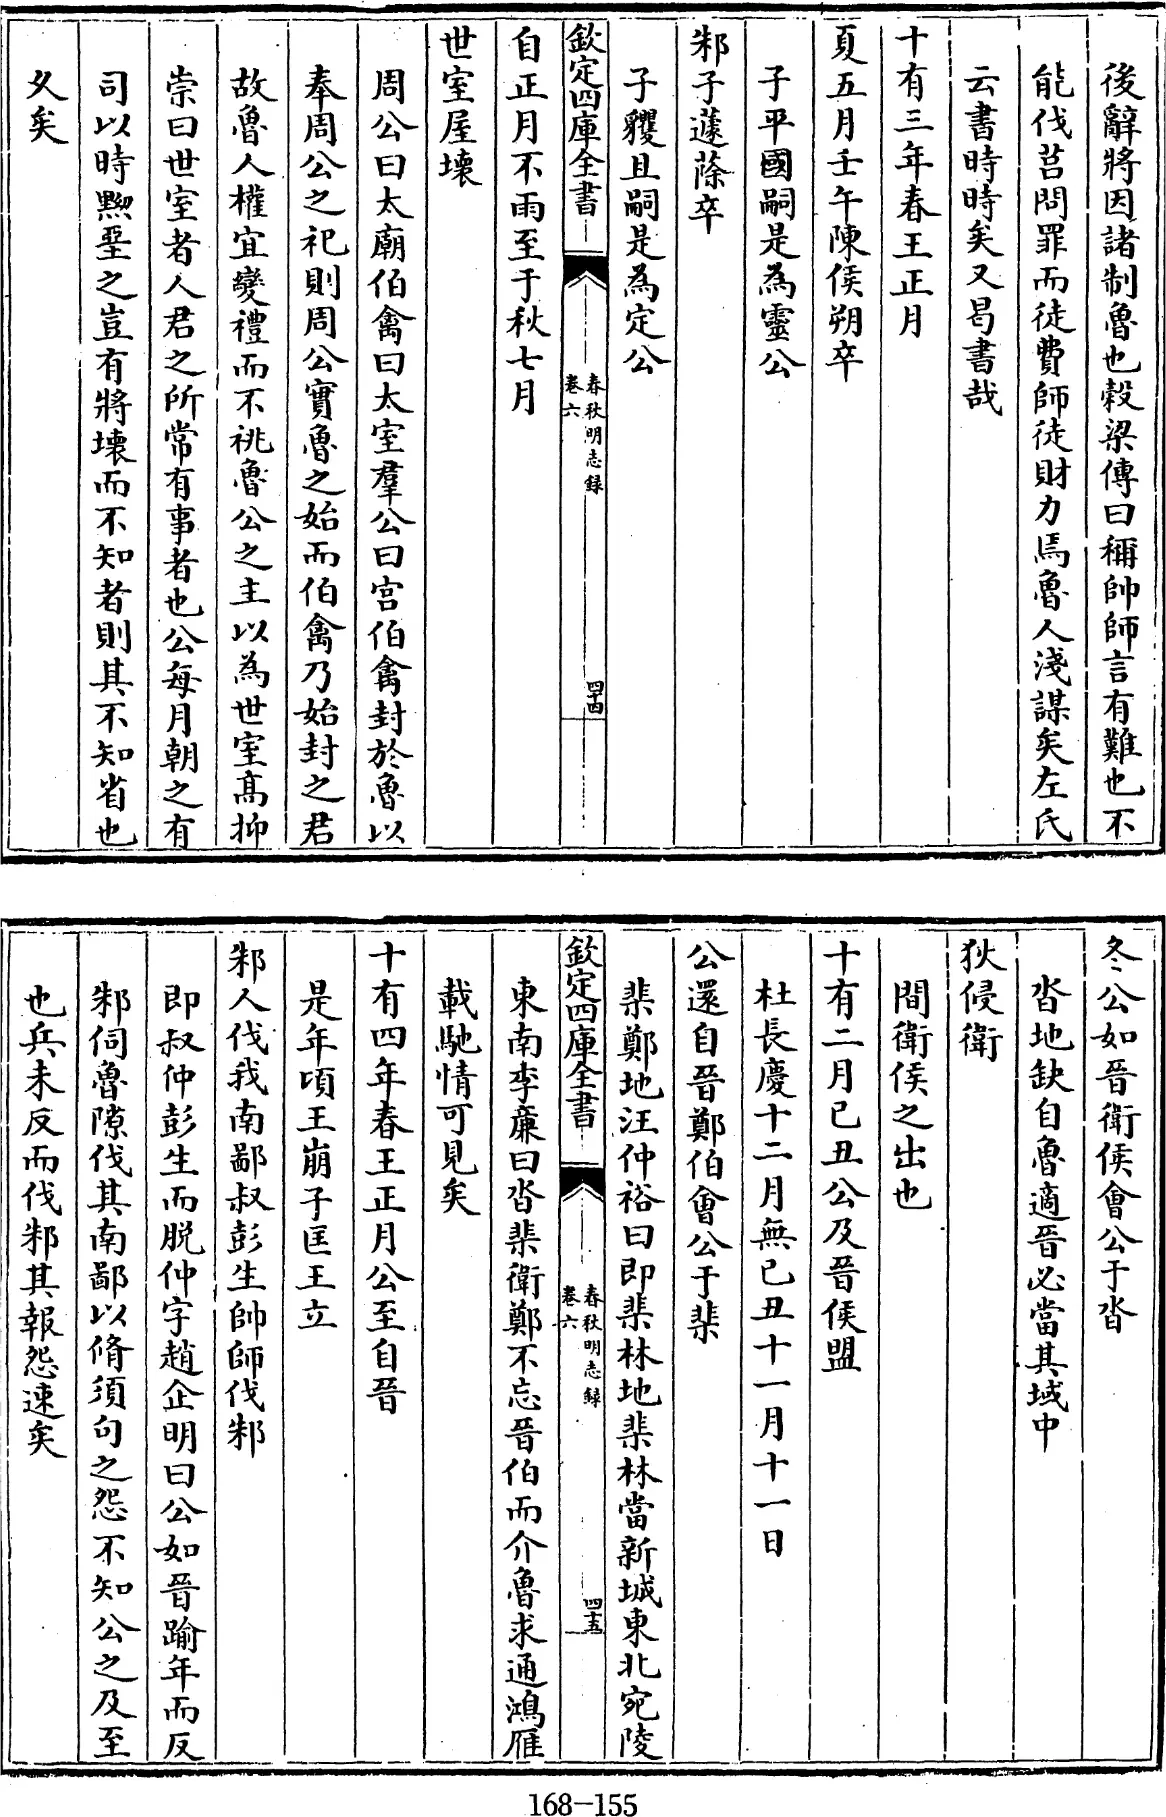 後辭將因諸制魯也榖梁傳曰稱帥師言有難也不
能伐莒問罪而徒費師徒財力焉魯人淺謀矣左氏
云書時時矣又曷書哉
十有三年春王正月
夏五月壬午陳侯朔卒
子平國嗣是為靈公
邾子蘧蒢卒
子貜且嗣是為定公
欽定四庫全書
春秋明志錄
卷六
四十四
自正月不雨至于秋七月
世室屋壞
周公曰太廟伯禽曰太室羣公曰宫伯禽封於魯以
奉周公之祀則周公實魯之始而伯禽乃始封之君
故魯人權宜變禮而不祧魯公之主以為世室髙抑
崇曰世室者人君之所常有事者也公每月朝之有
司以時黝堊之豈有將壞而不知者則其不知省也
久矣
冬公如晉衛侯會公于沓
沓地缺自魯適晉必當其域中
狄侵衛
間衛侯之出也
十有二月己丑公及晉侯盟
杜長慶十二月無己丑十一月十一日
公還自晉鄭伯會公于棐
棐鄭地汪仲裕曰即棐林地棐林當新城東北宛陵
欽定四庫全書
春秋明志錄
卷六
四十五
東南李廉曰沓棐衛鄭不忘晉伯而介魯求通鴻雁
載馳情可見矣
十有四年春王正月公至自晉
是年頃王崩子匡王立
邾人伐我南鄙叔彭生帥師伐邾
即叔仲彭生而脱仲字趙企明曰公如晉踰年而反
邾伺魯隙伐其南鄙以脩須句之怨不知公之及至
也兵未反而伐邾其報怨速矣
168-155